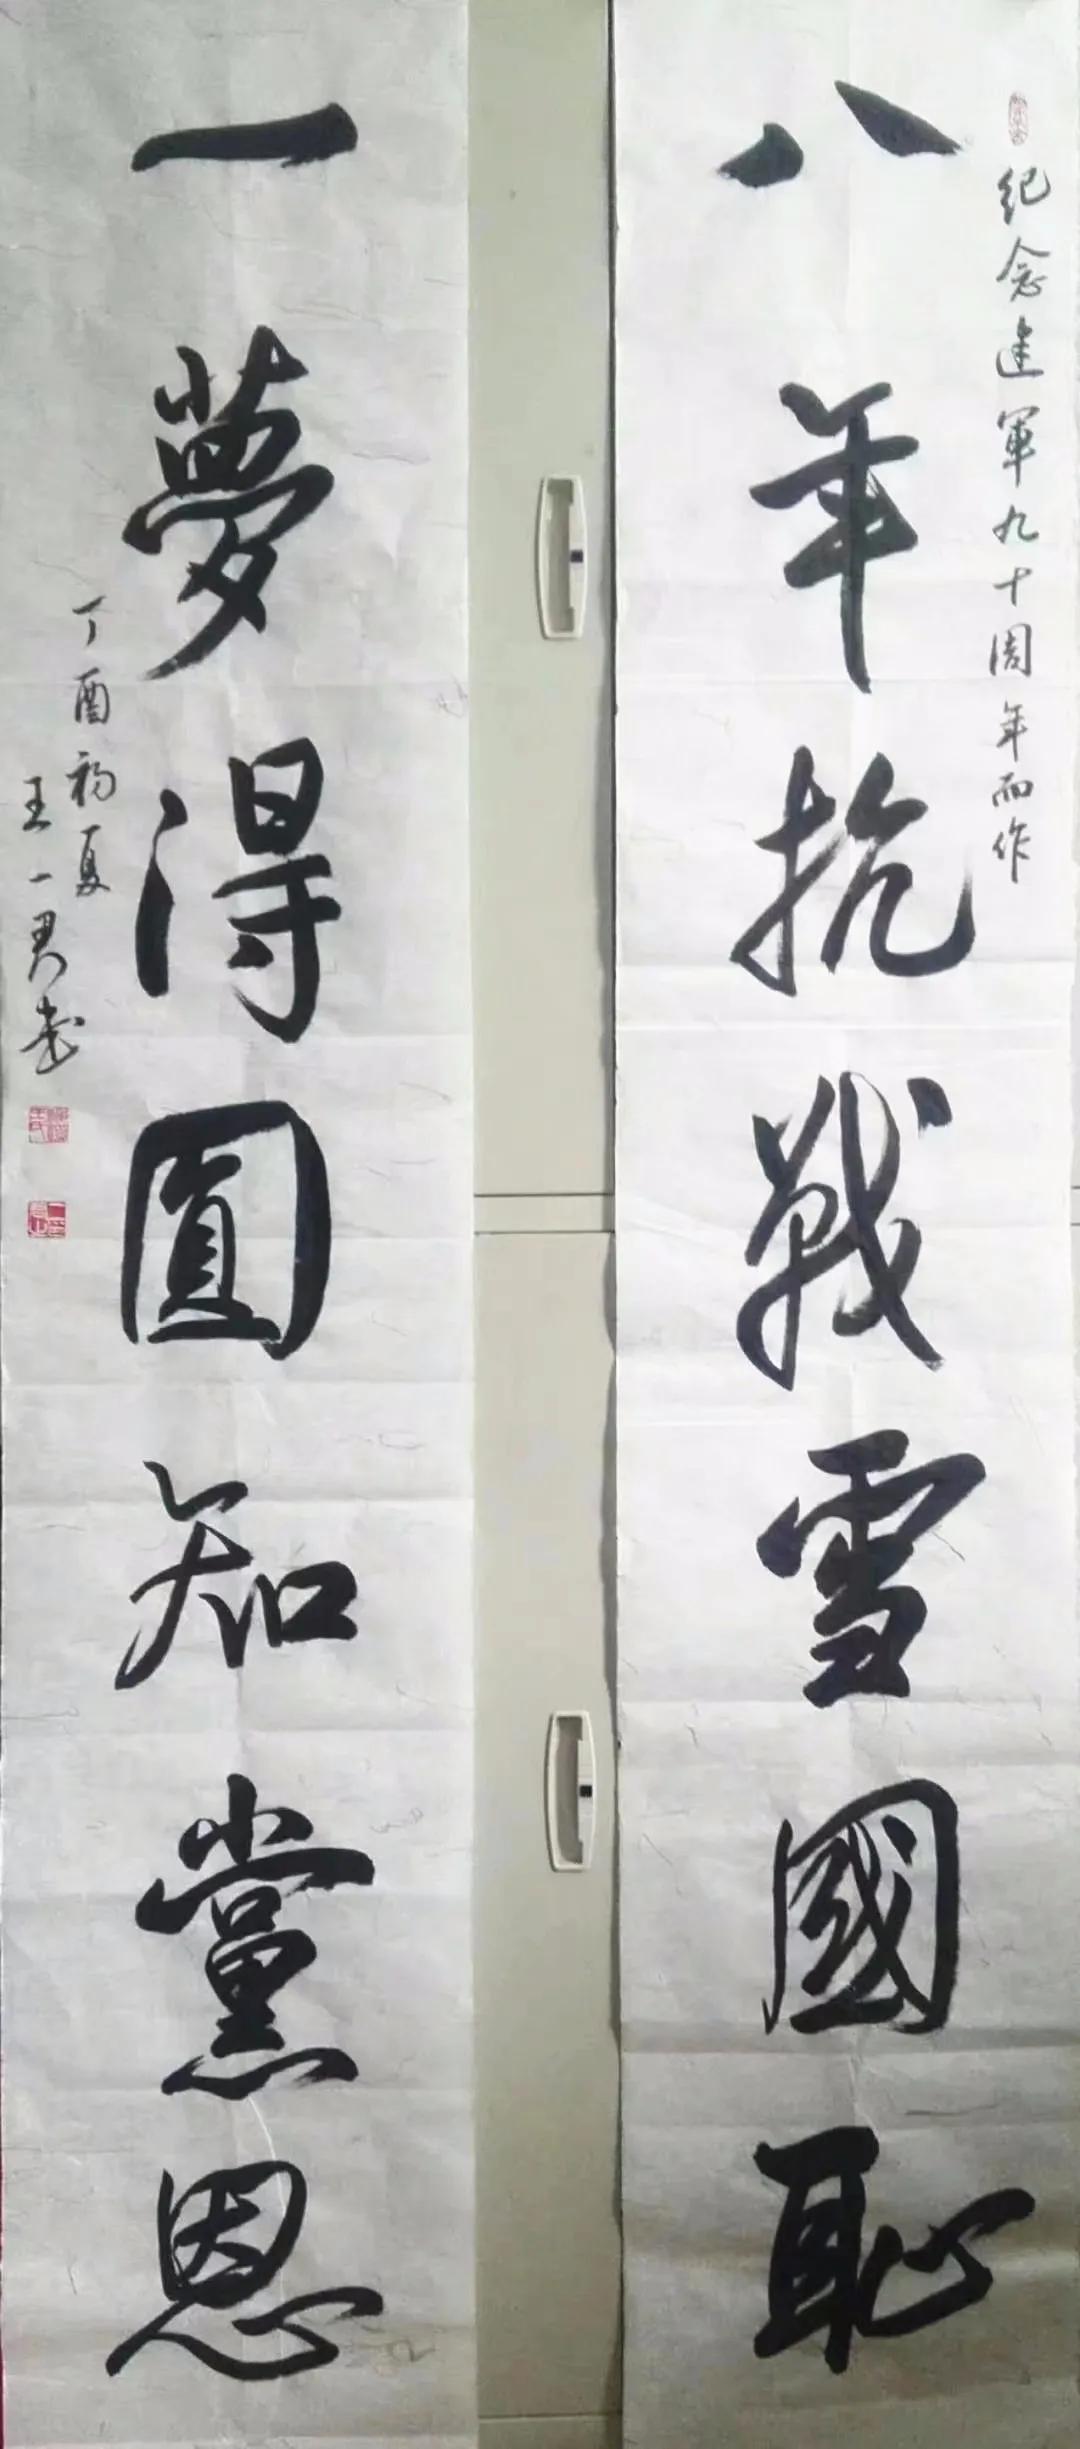 紀念建軍九十周年而作
八年抗戰雪國恥
一夢得圓知黨恩
丁酉初夏
王一君書